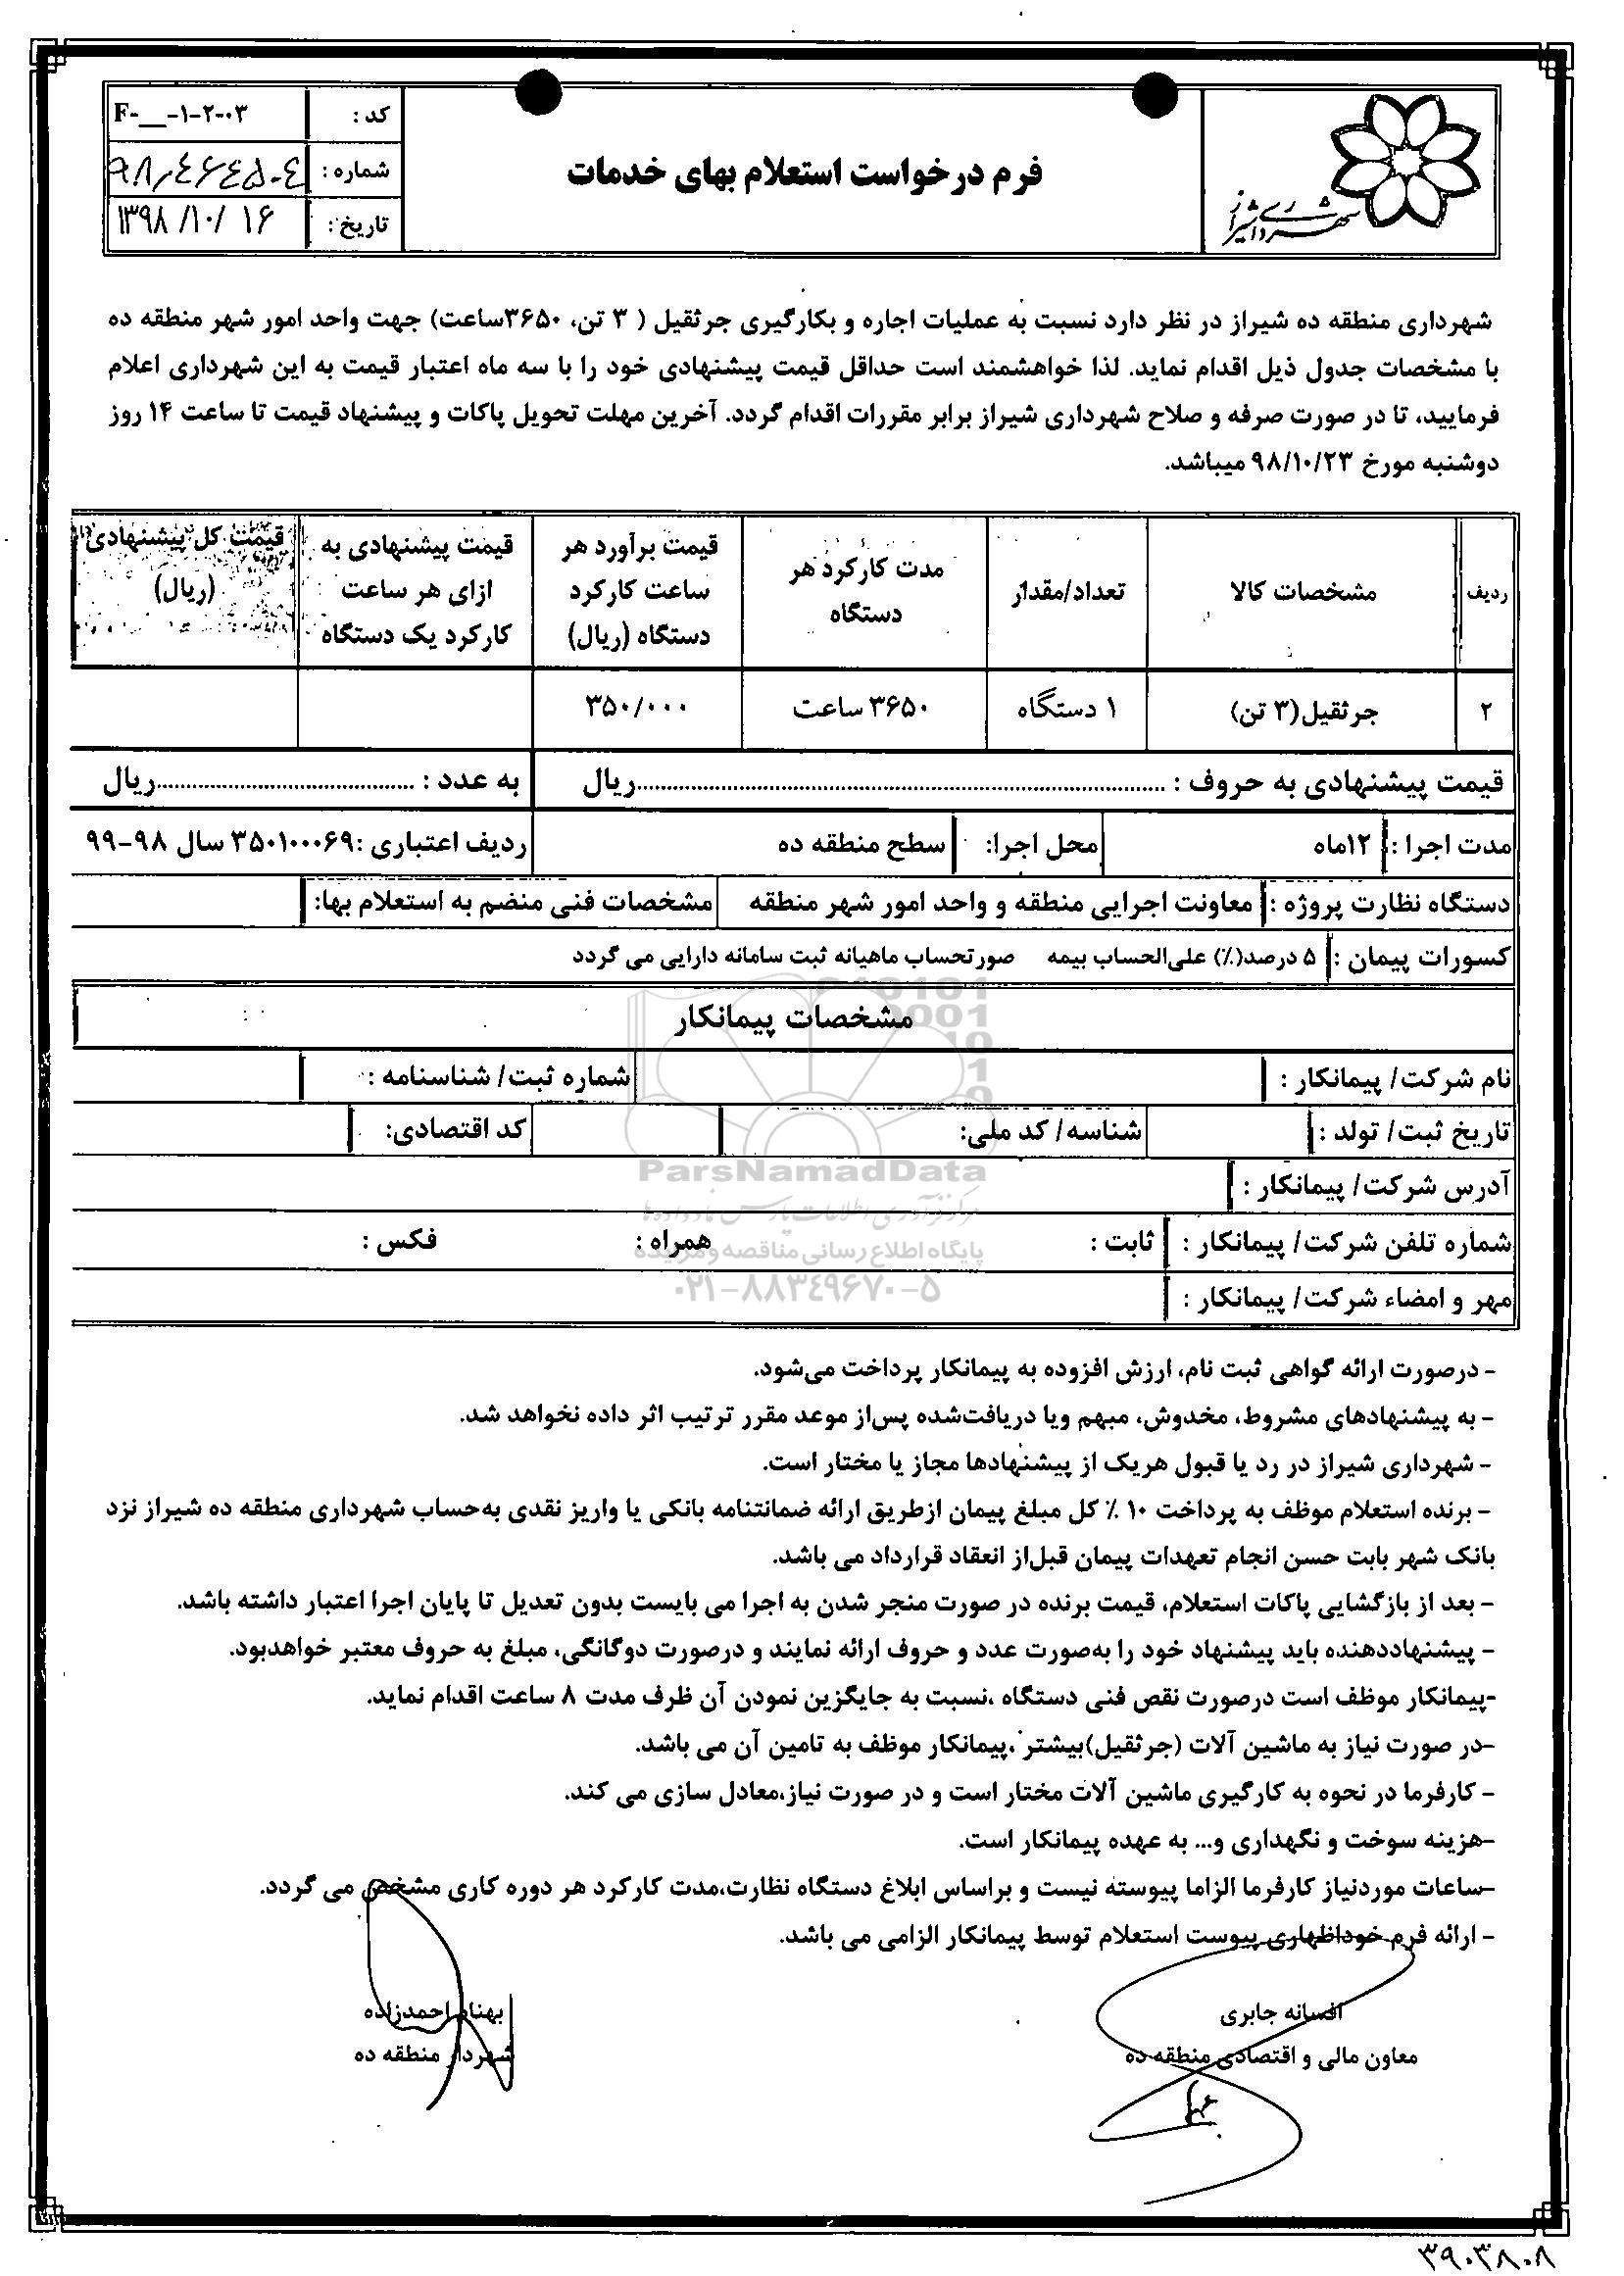 شهرداری شیراز
فرم درخواست استعلام بهای خدمات
کد : F-__-۱-۲-۰۳
شماره :
تاریخ : ۱۳۹۸/۱۰/۱۶
شهرداری منطقه ده شیراز در نظر دارد نسبت به عملیات اجاره و بکارگیری جرثقیل ( ۳ تن، ۳۶۵۰ساعت) جهت واحد امور شهر منطقه ده
با مشخصات جدول ذیل اقدام نماید. لذا خواهشمند است حداقل قیمت پیشنهادی خود را با سه ماه اعتبار قیمت به این شهرداری اعلام
فرمایید، تا در صورت صرفه و صلاح شهرداری شیراز برابر مقررات اقدام گردد. آخرین مهلت تحویل پاکات و پیشنهاد قیمت تا ساعت ۱۴ روز
دوشنبه مورخ ۹۸/۱۰/۲۳ میباشد.
ردیف مشخصات کالا تعداد/مقدار مدت کارکرد هر دستگاه قیمت برآورد هر ساعت کارکرد دستگاه (ریال) قیمت پیشنهادی به ازای هر ساعت کارکرد یک دستگاه قیمت کل پیشنهادی (ریال)
۲ جرثقیل(۳ تن) ۱ دستگاه ۳۶۵۰ ساعت ۳۵۰/۰۰۰
قیمت پیشنهادی به حروف : ........................................ریال به عدد : ........................................ریال
مدت اجرا : ۱۲ماه محل اجرا: سطح منطقه ده ردیف اعتباری :۳۵۰۱۰۰۰۶۹ سال ۹۸-۹۹
دستگاه نظارت پروژه : معاونت اجرایی منطقه و واحد امور شهر منطقه مشخصات فنی منضم به استعلام بها:
کسورات پیمان : ۵ درصد(٪) علی‌الحساب بیمه صورتحساب ماهیانه ثبت سامانه دارایی می گردد
مشخصات پیمانکار
نام شرکت/ پیمانکار : شماره ثبت/ شناسنامه :
تاریخ ثبت/ تولد : شناسه/ کد ملی: کد اقتصادی:
ParsNamadData
آدرس شرکت/ پیمانکار :
مرکز فرآوری اطلاعات پارس نماد داده‌ها
شماره تلفن شرکت/ پیمانکار : ثابت : همراه : فکس :
پایگاه اطلاع رسانی مناقصه و مزایده
۰۲۱-۸۸۳۴۹۶۷۰-۵
مهر و امضاء شرکت/ پیمانکار :
- درصورت ارائه گواهی ثبت نام، ارزش افزوده به پیمانکار پرداخت می‌شود.
- به پیشنهادهای مشروط، مخدوش، مبهم ویا دریافت‌شده پس‌از موعد مقرر ترتیب اثر داده نخواهد شد.
- شهرداری شیراز در رد یا قبول هریک از پیشنهادها مجاز یا مختار است.
- برنده استعلام موظف به پرداخت ۱۰ ٪ کل مبلغ پیمان ازطریق ارائه ضمانتنامه بانکی یا واریز نقدی به‌حساب شهرداری منطقه ده شیراز نزد
بانک شهر بابت حسن انجام تعهدات پیمان قبل‌از انعقاد قرارداد می باشد.
- بعد از بازگشایی پاکات استعلام، قیمت برنده در صورت منجر شدن به اجرا می بایست بدون تعدیل تا پایان اجرا اعتبار داشته باشد.
- پیشنهاددهنده باید پیشنهاد خود را به‌صورت عدد و حروف ارائه نمایند و درصورت دوگانگی، مبلغ به حروف معتبر خواهدبود.
-پیمانکار موظف است درصورت نقص فنی دستگاه ،نسبت به جایگزین نمودن آن ظرف مدت ۸ ساعت اقدام نماید.
-در صورت نیاز به ماشین آلات (جرثقیل)بیشتر ،پیمانکار موظف به تامین آن می باشد.
- کارفرما در نحوه به کارگیری ماشین آلات مختار است و در صورت نیاز،معادل سازی می کند.
-هزینه سوخت و نگهداری و... به عهده پیمانکار است.
-ساعات موردنیاز کارفرما الزاما پیوسته نیست و براساس ابلاغ دستگاه نظارت،مدت کارکرد هر دوره کاری مشخص می گردد.
- ارائه فرم خوداظهاری پیوست استعلام توسط پیمانکار الزامی می باشد.
افسانه جابری بهنام احمدزاده
معاون مالی و اقتصادی منطقه ده شهردار منطقه ده
۳۹۰۳۸۰۸